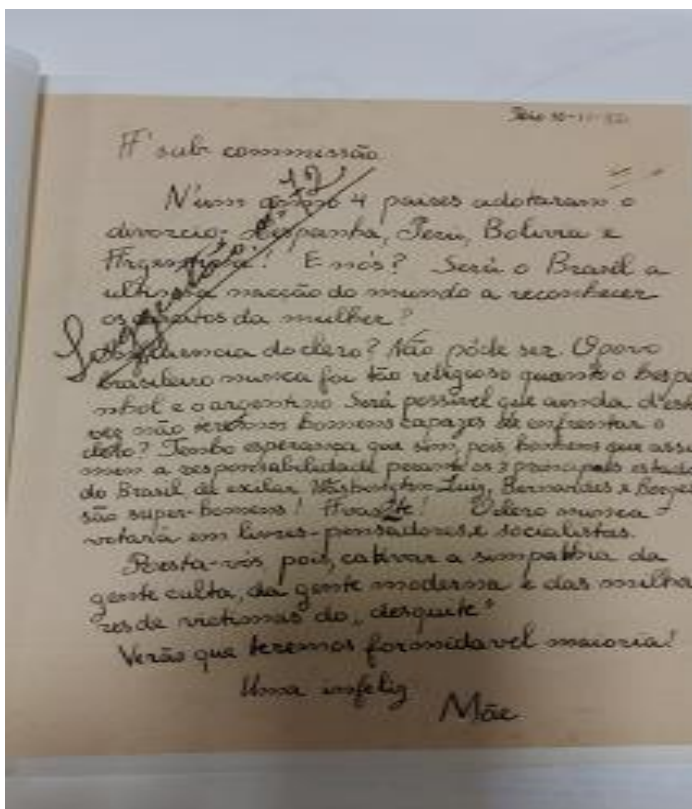 Rio
A' sub commissão
N'um anno 4 paises adotaram o
divorcio: Hespanha, Peru, Bolivia e
Argentina! E nós? Será o Brasil a
ultima nacção do mundo a reconhecer
os direitos da mulher?
influencia do clero? Não póde ser. O povo
brasileiro nunca foi tão religioso quanto o hespa
nhol e o argentino. Será possivel que ainda d'est
vez não teremos homens capazes de enfrentar o
clero? Tenho esperança que sim, pois homens que assu
mem a responsabilidade perante os 3 principaes estado
do Brasil, de exilar, Washington Luiz, Bernardes e Borges
são super-homens! Avante! O clero nunca
votará em livres-pensadores e socialistas.
Resta-vós, pois, cativar a sympathia da
gente culta, da gente moderna e das milha
res de victimas do „desquite"
Verão que teremos formidavel maioria!
Uma infeliz
Mãe